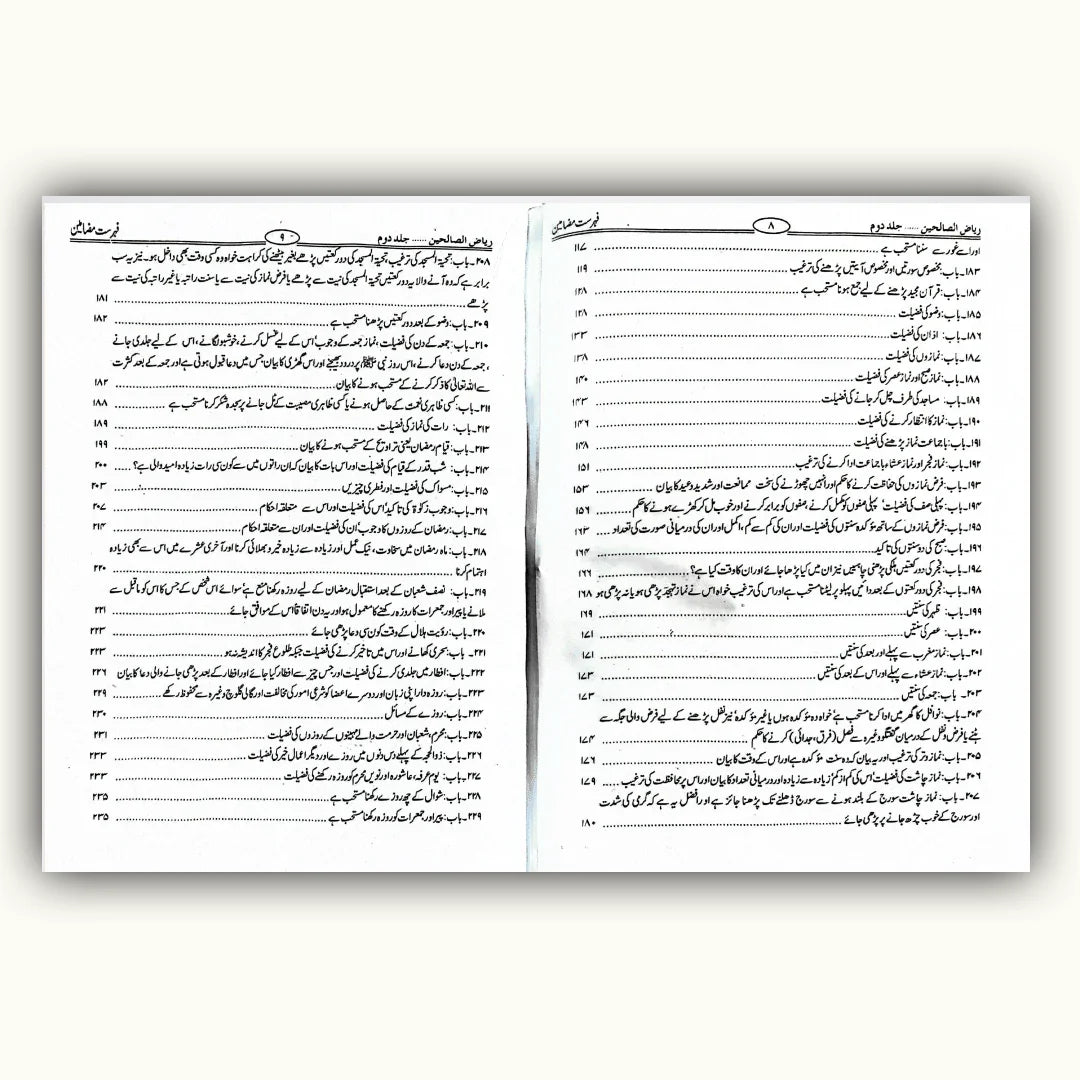 ریاض الصالحین ...... جلد دوم ۸ فہرست مضامین
اور اسے غور سے سننا مستحب ہے ۱۱۷
۱۸۳۔ باب: مخصوص سورتیں اور مخصوص آیتیں پڑھنے کی ترغیب ۱۱۹
۱۸۴۔ باب: قرآن مجید پڑھنے کے لیے جمع ہونا مستحب ہے ۱۲۸
۱۸۵۔ باب: وضو کی فضیلت ۱۲۸
۱۸۶۔ باب: اذان کی فضیلت ۱۳۳
۱۸۷۔ باب: نمازوں کی فضیلت ۱۳۸
۱۸۸۔ باب: نماز صبح اور نماز عصر کی فضیلت ۱۴۰
۱۸۹۔ باب: مساجد کی طرف چل کر جانے کی فضیلت ۱۴۳
۱۹۰۔ باب: نماز کا انتظار کرنے کی فضیلت ۱۴۶
۱۹۱۔ باب: باجماعت نماز پڑھنے کی فضیلت ۱۴۸
۱۹۲۔ باب: نماز فجر اور نماز عشاء باجماعت ادا کرنے کی ترغیب ۱۵۱
۱۹۳۔ باب: فرض نمازوں کی حفاظت کرنے کا حکم اور انہیں چھوڑنے کی سخت ممانعت اور شدید وعید کا بیان ۱۵۳
۱۹۴۔ باب: پہلی صف کی فضیلت، پہلی صفوں کو مکمل کرنے، صفوں کو برابر کرنے اور خوب مل کر کھڑے ہونے کا حکم ۱۵۶
۱۹۵۔ باب: فرض نمازوں کے ساتھ مؤکدہ سنتوں کی فضیلت اور ان کی کم سے کم، اکمل اور ان کی درمیانی صورت کی تعداد ۱۶۳
۱۹۶۔ باب: صبح کی دو سنتوں کی تاکید ۱۶۴
۱۹۷۔ باب: فجر کی دو رکعتیں ہلکی پڑھنی چاہییں نیز ان میں کیا پڑھا جائے اور ان کا وقت کیا ہے؟ ۱۶۶
۱۹۸۔ باب: فجر کی دو رکعتوں کے بعد دائیں پہلو پر لیٹنا مستحب ہے اور اس کی ترغیب خواہ اس نے نماز تہجد پڑھی ہو یا نہ پڑھی ہو ۱۶۸
۱۹۹۔ باب: ظہر کی سنتیں ۱۶۹
۲۰۰۔ باب: عصر کی سنتیں ۱۷۱
۲۰۱۔ باب: نماز مغرب سے پہلے اور بعد کی سنتیں ۱۷۱
۲۰۲۔ باب: نماز عشاء سے پہلے اور اس کے بعد کی سنتیں ۱۷۳
۲۰۳۔ باب: جمعہ کی سنتیں ۱۷۳
۲۰۴۔ باب: نوافل کا گھر میں ادا کرنا مستحب ہے، خواہ وہ مؤکدہ ہوں یا غیر مؤکدہ، نیز نفل پڑھنے کے لیے فرض والی جگہ سے
ہٹنے یا فرض و نفل کے درمیان گفتگو وغیرہ سے فصل (فرق، جدائی) کرنے کا حکم ۱۷۴
۲۰۵۔ باب: نماز وتر کی ترغیب اور یہ بیان کہ وہ سنت مؤکدہ ہے اور اس کے وقت کا بیان ۱۷۶
۲۰۶۔ باب: نماز چاشت کی فضیلت، اس کی کم از کم، زیادہ سے زیادہ اور درمیانی تعداد کا بیان اور اس پر محافظت کی ترغیب ۱۷۹
۲۰۷۔ باب: نماز چاشت سورج کے بلند ہونے سے سورج ڈھلنے تک پڑھنا جائز ہے اور افضل یہ ہے کہ گرمی کی شدت
اور سورج کے خوب چڑھ جانے پر پڑھی جائے ۱۸۰
ریاض الصالحین ...... جلد دوم ۹ فہرست مضامین
۲۰۸۔ باب: تحیۃ المسجد کی ترغیب، تحیۃ المسجد کی دو رکعتیں پڑھے بغیر بیٹھنے کی کراہت خواہ وہ کسی وقت بھی داخل ہو۔ نیز یہ سب
برابر ہے کہ وہ آنے والا یہ دو رکعتیں تحیۃ المسجد کی نیت سے پڑھے یا فرض نماز کی نیت سے یا سنت راتبہ یا غیر راتبہ کی نیت سے
پڑھے ۱۸۱
۲۰۹۔ باب: وضو کے بعد دو رکعتیں پڑھنا مستحب ہے ۱۸۲
۲۱۰۔ باب: جمعہ کے دن کی فضیلت، نماز جمعہ کے وجوب، اس کے لیے غسل کرنے، خوشبو لگانے، اس کے لیے جلدی جانے
، جمعہ کے دن دعا کرنے، اس روز نبی ﷺ پر درود بھیجنے اور اس گھڑی کا بیان جس میں دعا قبول ہوتی ہے اور جمعہ کے بعد کثرت
سے اللہ تعالیٰ کا ذکر کرنے کے مستحب ہونے کا بیان ۱۸۲
۲۱۱۔ باب: کسی ظاہری نعمت کے حاصل ہونے یا کسی ظاہری مصیبت کے ٹل جانے پر سجدہ شکر کرنا مستحب ہے ۱۸۸
۲۱۲۔ باب: رات کی نماز کی فضیلت ۱۸۹
۲۱۳۔ باب: قیام رمضان یعنی تراویح کے مستحب ہونے کا بیان ۱۹۹
۲۱۴۔ باب: شب قدر کے قیام کی فضیلت اور اس بات کا بیان کہ ان راتوں میں سے کون سی رات زیادہ امید والی ہے؟ ۲۰۰
۲۱۵۔ باب: مسواک کی فضیلت اور فطری چیزیں ۲۰۳
۲۱۶۔ باب: وجوب زکوٰۃ کی تاکید، اس کی فضیلت اور اس سے متعلقہ احکام ۲۰۷
۲۱۷۔ باب: رمضان کے روزوں کا وجوب، ان کی فضیلت اور ان سے متعلقہ احکام ۲۱۴
۲۱۸۔ باب: ماہ رمضان میں سخاوت، نیک عمل اور زیادہ سے زیادہ خیر و بھلائی کرنا اور آخری عشرے میں اس سے بھی زیادہ
اہتمام کرنا ۲۲۰
۲۱۹۔ باب: نصف شعبان کے بعد استقبال رمضان کے لیے روزہ رکھنا منع ہے، سوائے اس شخص کے جس کا اس کو ماقبل سے
ملانے یا پیر اور جمعرات کا روزہ رکھنے کا معمول ہو اور یہ دن اتفاقاً اس کے موافق آ جائے ۲۲۱
۲۲۰۔ باب: رؤیت ہلال کے وقت کون سی دعا پڑھی جائے ۲۲۳
۲۲۱۔ باب: سحری کھانے اور اس میں تاخیر کرنے کی فضیلت جبکہ طلوع فجر کا اندیشہ نہ ہو ۲۲۳
۲۲۲۔ باب: افطار میں جلدی کرنے کی فضیلت اور جس چیز سے افطار کیا جائے اور افطار کے بعد پڑھی جانے والی دعا کا بیان ۲۲۶
۲۲۳۔ باب: روزہ دار اپنی زبان اور دوسرے اعضا کو شرعی امور کی مخالفت اور گالی گلوچ وغیرہ سے محفوظ رکھے ۲۲۹
۲۲۴۔ باب: روزے کے مسائل ۲۳۰
۲۲۵۔ باب: محرم، شعبان اور حرمت والے مہینوں کے روزوں کی فضیلت ۲۳۱
۲۲۶۔ باب: ذوالحجہ کے پہلے دس دنوں میں روزے اور دیگر اعمال خیر کی فضیلت ۲۳۳
۲۲۷۔ باب: یوم عرفہ، عاشورہ اور نویں محرم کو روزہ رکھنے کی فضیلت ۲۳۳
۲۲۸۔ باب: شوال کے چھ روزے رکھنا مستحب ہے ۲۳۵
۲۲۹۔ باب: پیر اور جمعرات کو روزہ رکھنا مستحب ہے ۲۳۵